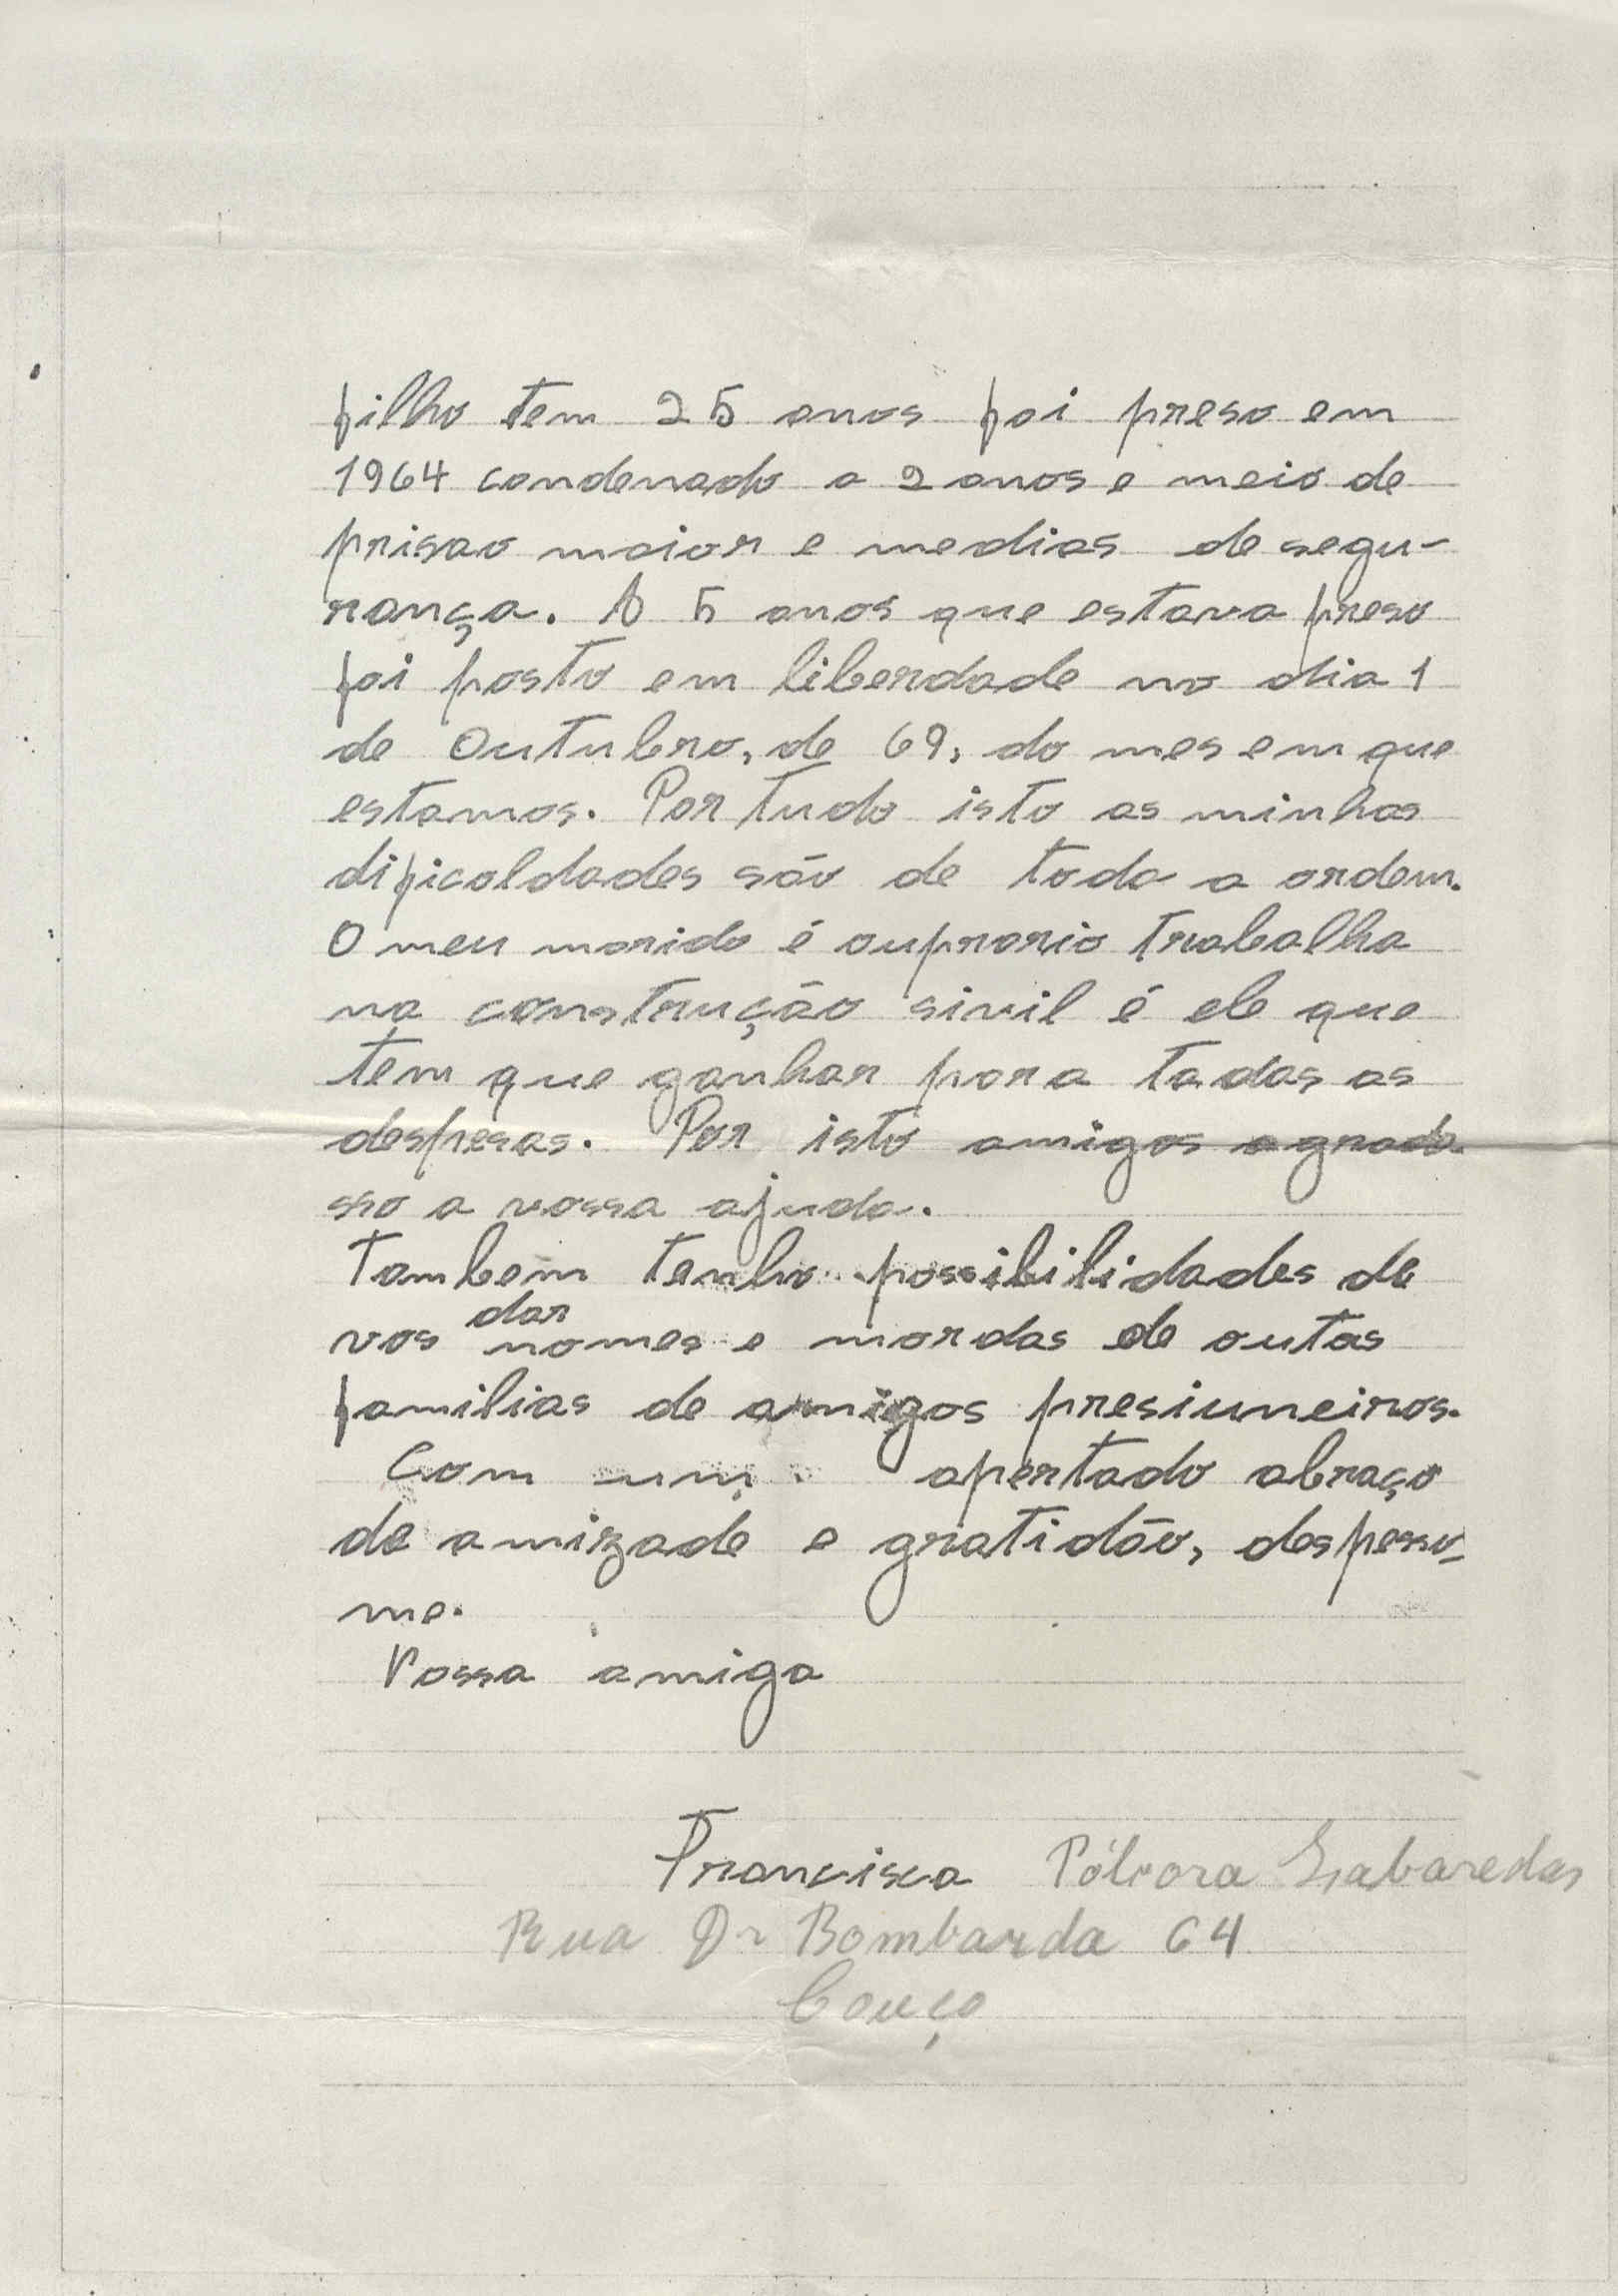 filho tem 25 anos foi preso em
1964 condenado a 2 anos e meio de
prisao maior e medias de segu-
rança. A 5 anos que estava preso
foi posto em liberdade no dia 1
de Outubro, de 69, do mes em que
estamos. Por tudo isto as minhas
dificoldades são de toda a ordem.
O meu marido é ouprario trabalha
na construção sivil é ele que
tem que ganhar para tadas as
despesas. Por isto amigos agrade
sso a vossa ajuda.
Tambem tenho possibilidades de
dar
vos nomes e mordas de outas
familias de amigos presiuneiros.
Com um apertado abraço
de amizade e gratidão, despesso-
me.
Vossa amiga
Francisca Pólvora Labaredas
Rua Dr Bombarda 64
Couço